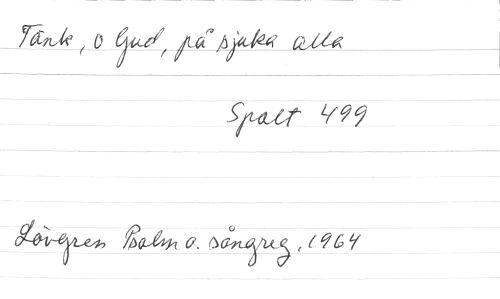 Tänk, o Gud, på sjuka alla
Spalt 499
Lövgren Psalm o. sångreg. 1964